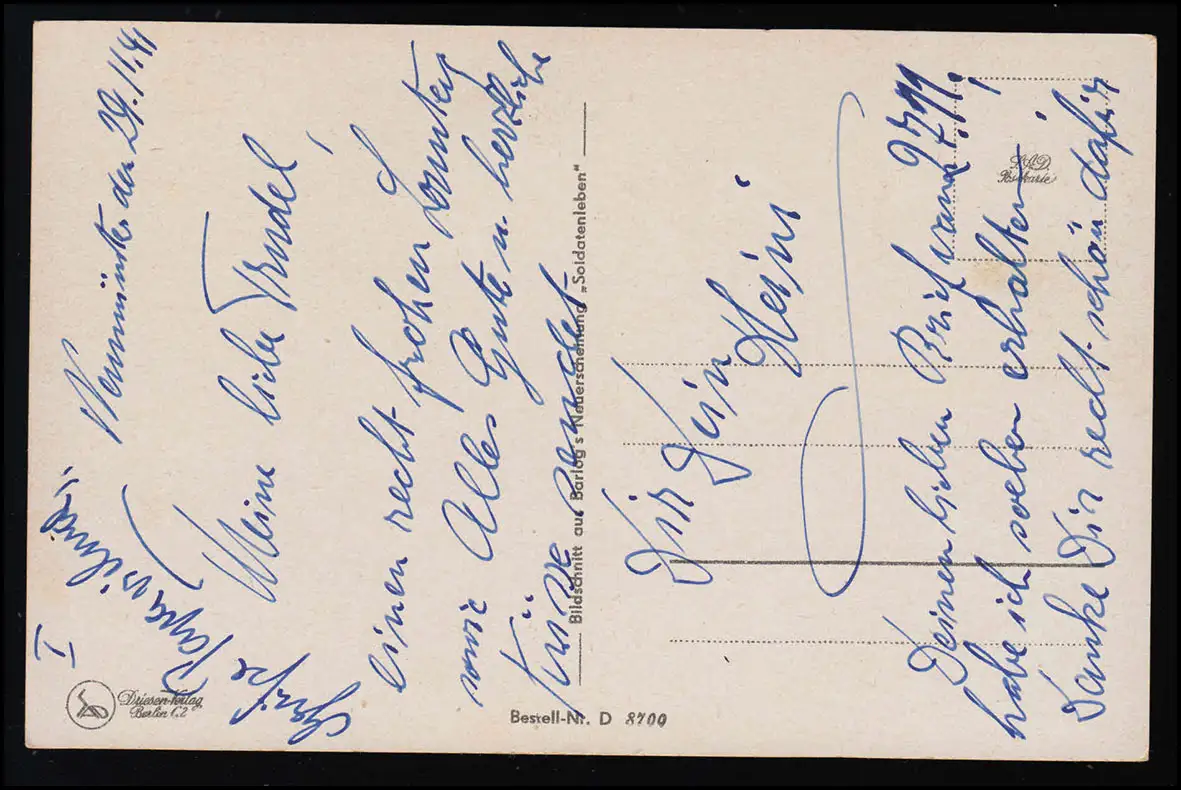 I
Neumünster den 29.11.41
Meine liebe Trudel!
einen recht frohen Sonntag
sowie Alles Gute u. herzliche
Küsse sendet
Dir Dein
Heini
Deinen lieben Brief vom 27.11.
habe ich soeben erhalten!
Danke Dir recht schön dafür
Grüße
Driesen-Verlag
Berlin C.2
Bildschnitt aus Barlog's Neuerscheinung „Soldatenleben“
Bestell-Nr. D 8709
Postkarte